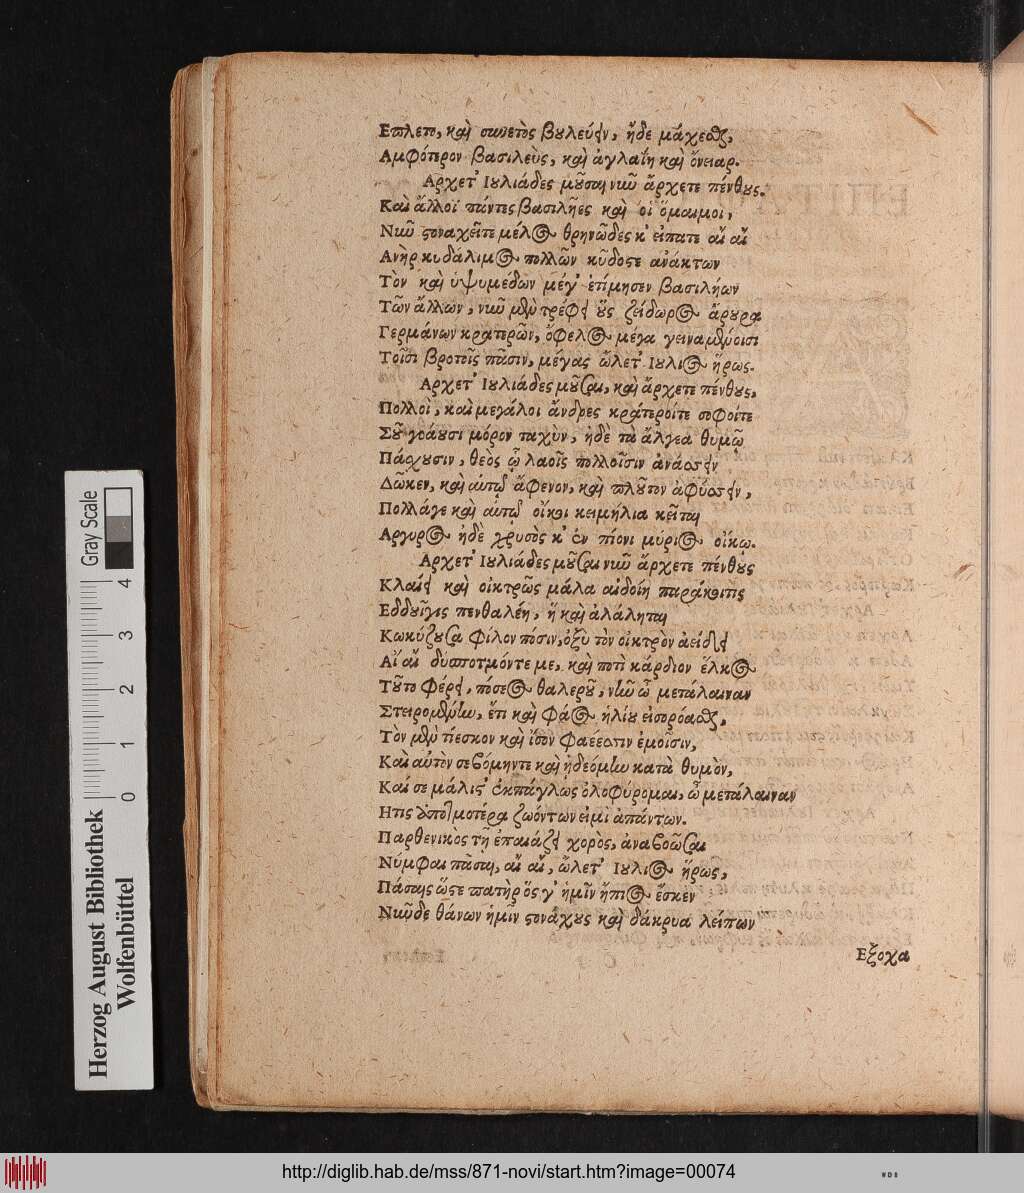 Επλετο, καὶ συνετὸς βουλεύειν, ἤδε μάχεσθαι,
Αμφότερον βασιλεὺς, καὶ ἀγλαΐη καὶ ὄνειαρ.
Αρχετ' Ιουλιάδες μοῦσαι νιῦ ἄρχετε πένθους.
Καὶ ἄλλοι πάντες βασιλῆες καὶ οἱ ὅμαιμοι,
Νιῦ στοναχεῖτε μέλος θρηνῶδες κ' εἰπατε αἲ αἲ
Ανὴρ κυδάλιμος πολλῶν κῦδος τε ἀνάκτων
Τὸν καὶ ὑψυμέδων μέγ' ἐτίμησεν βασιλήων
Τῶν ἄλλων, νιῦ μὲν τρέφει οὓς ζείδωρος ἄρουρα
Γερμάνων κρατερῶν, ὄφελος μέγα γειναμένοισι
Τοῖσι βροτοῖς πᾶσιν, μέγας ὤλετ' Ιουλιος ἥρως.
Αρχετ' Ιουλιάδες μοῦσαι, καὶ ἄρχετε πένθους,
Πολλοὶ, καὶ μεγάλοι ἄνδρες κράτεροίτε σοφοίτε
Σοῦ γοάουσι μόρον ταχὺν, ἠδὲ τὰ ἄλγεα θυμῶ
Πάσχουσιν, θεὸς ᾧ λαοῖς πολλοῖσιν ἀνάσσειν
Δῶκεν, καὶ αὐτῷ ἄφενον, καὶ πλοῦτον ἀφύσσειν,
Πολλάγε καὶ αὐτῷ οἴκοι κειμήλια κεῖται
Αργυρος ἠδὲ χρυσὸς κ' ἐν πίονι μύριος οἴκῳ.
Αρχετ' Ιουλιάδες μοῦσαι νιῦ ἄρχετε πένθους
Κλαίει καὶ οἰκτρῶς μάλα αἰδοίη παράκοιτις
Εδδουΐγις πενθαλέη, ἥ καὶ ἀλάληται
Κωκύζουσα φίλον πόσιν, ὀξὺ τὸν οἰκτρὸν ἀείδει
Αἲ αἲ δύσποτμόν τε με, καὶ ποτὶ κάρδιον ἕλκος
Τοῦτο φέρει, πόσεος θαλεροῦ, νιῦ ὦ μετάλαιναν
Στειρομένην, ἔτι καὶ φάος ἡλίου εἰσορόασθαι,
Τὸν μὲν τίεσκον καὶ ἴσον φαέεσσιν ἐμοῖσιν,
Καὶ αὐτὸν σεβόμηντε καὶ ἠδεόμην κατὰ θυμὸν,
Καί σε μάλιστ' ἐκπάγλως ὀλοφύρομαι, ὦ μετάλαιναν
Ητις ἀποτμοτέρα ζωόντων εἰμὶ ἁπάντων.
Παρθενικὸς τῇ ἐπαιάζει χορὸς, ἀναβοῶσαι
Νύμφαι πᾶσαι, αἲ αἲ, ὤλετ' Ιουλιος ἥρως,
Πάσαις ὥστε πατὴρ ὅς γ' ἡμῖν ἤπιος ἔσκεν
Νιῦδε θάνων ἡμῖν στονάχους καὶ δάκρυα λείπων
Εξοχα
Gray Scale
0 1 2 3 4
Herzog August Bibliothek
Wolfenbüttel
http://diglib.hab.de/mss/871-novi/start.htm?image=00074